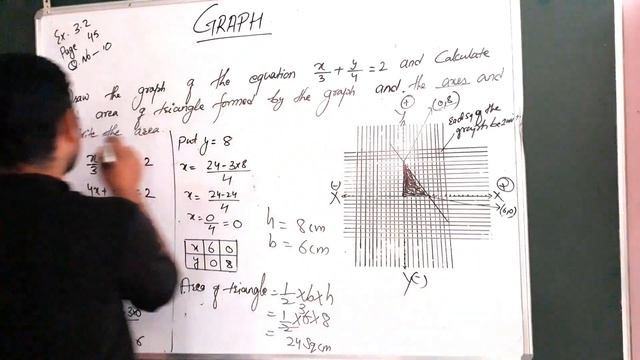 GRAPH
Ex. 3.2
Page 45
Q No - 10
the graph of the equation x/3 + y/4 = 2 and Calculate
area of triangle formed by the graph and the axes and
the area.
x/3 2
4x+ = 2
Put y = 8
x = 24-3x8/4
x = 24-24/4
x = 0/4 = 0
x 6 0
y 0 8
h = 8cm
b = 6cm
Area of triangle = 1/2 x b x h
= 1/2 x 6 x 8
= 24 sq cm
(+)
Y
(0,8)
of the
graph be 2 unit
(-)
X
X
(+)
(6,0)
Y(-)
6